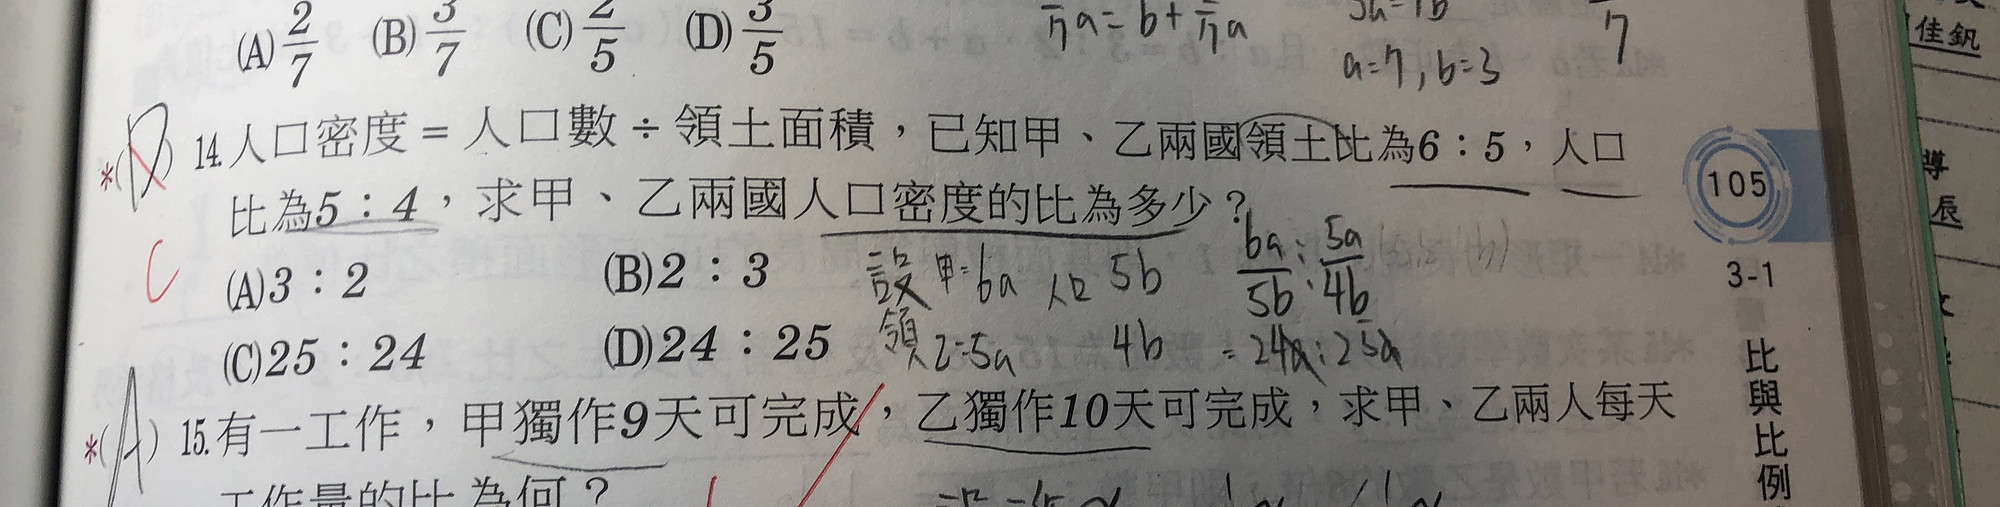 (A) 2/7 (B) 3/7 (C) 2/5 (D) 3/5
a=7, b=3
7
*(D) 14.人口密度=人口數÷領土面積，已知甲、乙兩國領土比為6：5，人口
比為5：4，求甲、乙兩國人口密度的比為多少？
C
(A)3：2 (B)2：3
(C)25：24 (D)24：25
設 甲=6a 人口 5b
領 乙=5a 4b
6a/5b : 5a/4b
=24a:25a
*(A) 15.有一工作，甲獨作9天可完成，乙獨作10天可完成，求甲、乙兩人每天
工作量的比為何？
105
3-1
比與比例
佳釩
導
辰